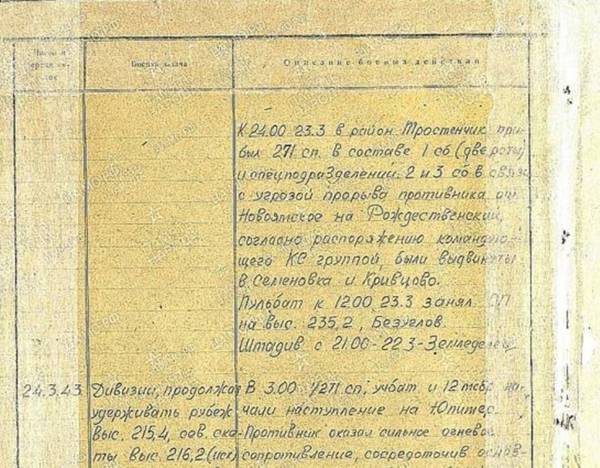 Числа и
Боевая задача
Описание боевых действий
К 24.00 23.3 в район Тростенчик при-
был 271 сп. в составе 1 сб (две роты)
и спецподразделений. 2 и 3 сб в связи
с угрозой прорыва противника от
на Рождественский,
согласно распоряжению командую-
щего КС группой, были выдвинуты
в Селеновка и Кривцово.
Пульбат к 12.00 23.3 занял ОП
на выс. 235,2, Безуглов.
Штадив с 21.00 - 22.3 - Земледелец
24.3.43. Дивизии, продолжая
удерживать рубеж
выс. 215,4, сев. ска-
ты выс. 216,2 (иск)
В 3.00 1/271 сп, учбат и 12 тсбр на-
чали наступление на Юпитер.
Противник оказал сильное огневое
сопротивление, сосредоточив основ-